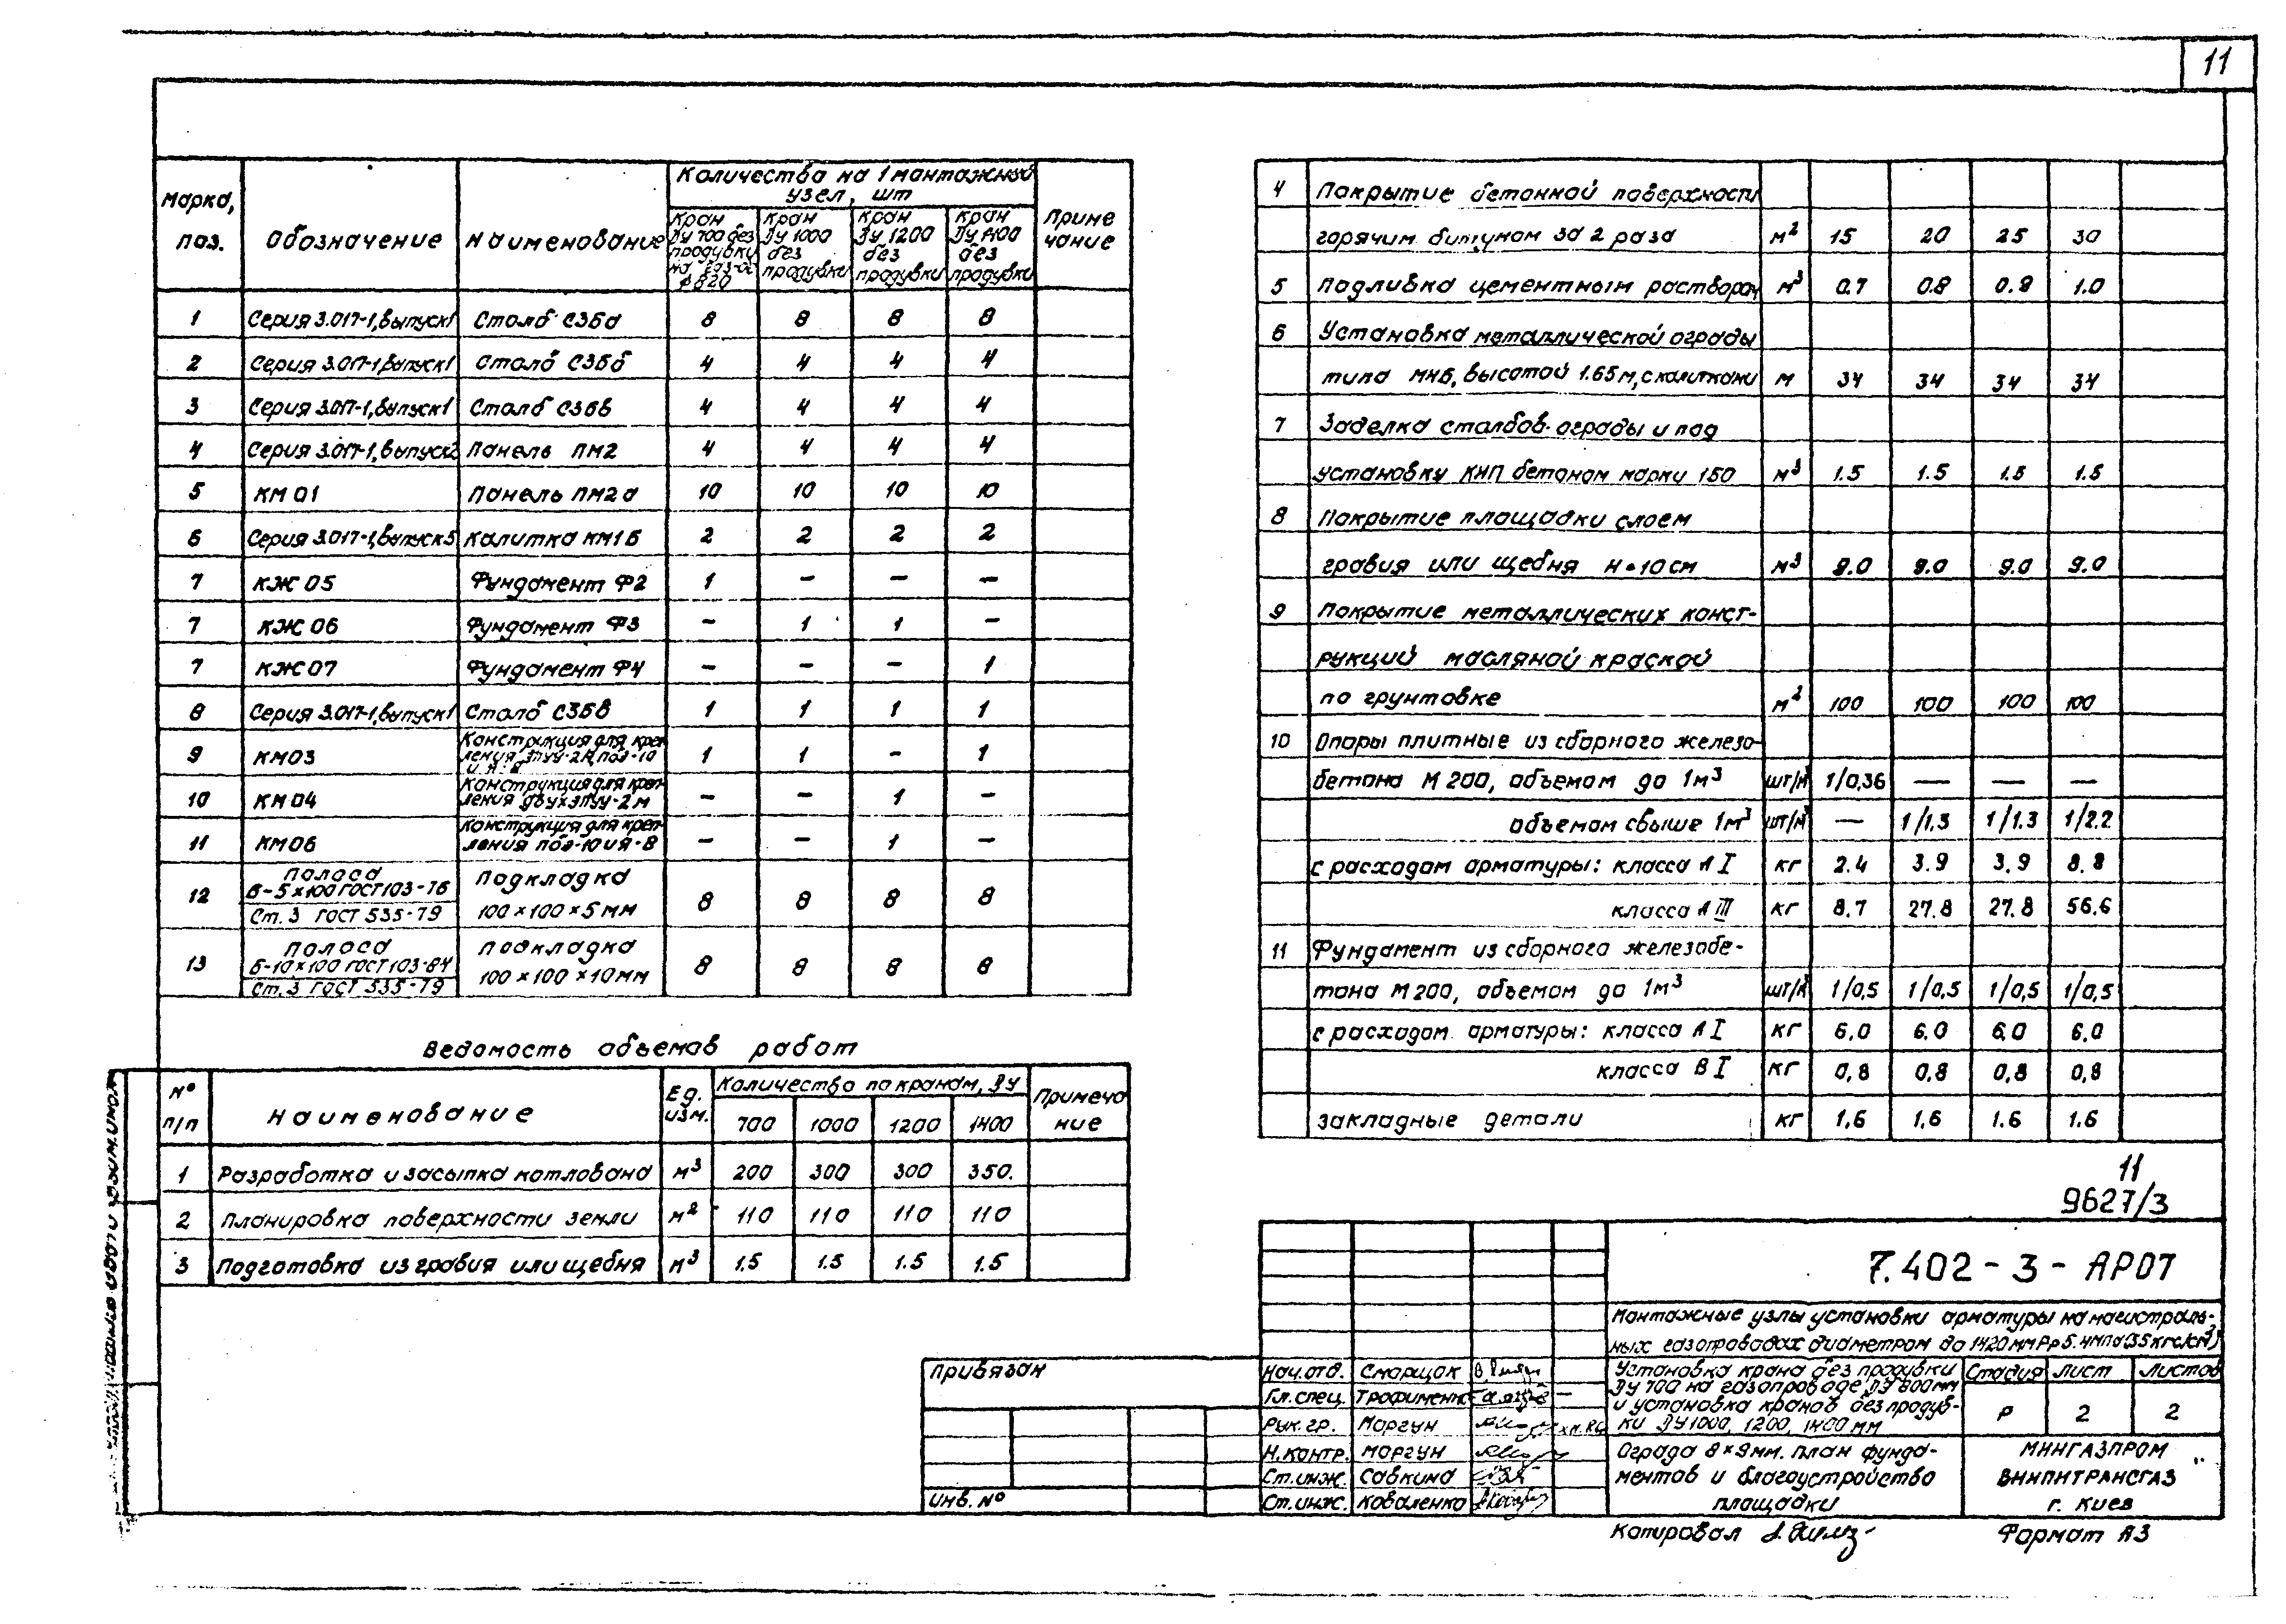 11
Марка, поз. Обозначение Наименование Количество на 1 монтажный узел, шт Примечание
Кран Ду 700 без продувки на ф 820 Кран Ду 1000 без продувки Кран Ду 1200 без продувки Кран Ду 1400 без продувки
1 Серия 3.017-1, выпуск 1 Столб С36а 8 8 8 8
2 Серия 3.017-1, выпуск 1 Столб С36б 4 4 4 4
3 Серия 3.017-1, выпуск 1 Столб С36в 4 4 4 4
4 Серия 3.017-1, выпуск 2 Панель ПМ2 4 4 4 4
5 КМ 01 Панель ПМ2а 10 10 10 10
6 Серия 3.017-1, выпуск 5 Калитка КМ1Б 2 2 2 2
7 КЖ 05 Фундамент Ф2 1 – – –
7 КЖ 06 Фундамент Ф3 – 1 1 –
7 КЖ 07 Фундамент Ф4 – – – 1
8 Серия 3.017-1, выпуск 1 Столб С36в 1 1 1 1
9 КМ03 Конструкция для крепления 1 1 – 1
10 КМ 04 Конструкция для крепления двух ЭПУУ-2М – – 1 –
11 КМ06 Конструкция для крепления – – 1 –
12 Полоса Б-5×100 ГОСТ 103-76 Подкладка
Ст. 3 ГОСТ 535-79 100×100×5 мм 8 8 8 8
13 Полоса Б-10×100 ГОСТ 103-84 Подкладка
Ст. 3 ГОСТ 535-79 100×100×10 мм 8 8 8 8
Ведомость объемов работ
№ п/п Наименование Ед. изм. Количество по кранам, Ду Примечание
700 1000 1200 1400
1 Разработка и засыпка котлована м³ 200 300 300 350.
2 Планировка поверхности земли м² 110 110 110 110
3 Подготовка из гравия или щебня м³ 1.5 1.5 1.5 1.5
4 Покрытие бетонной поверхности
горячим битумом за 2 раза м² 15 20 25 30
5 Подливка цементным раствором м³ 0.7 0.8 0.9 1.0
6 Установка металлической ограды
типа МИБ, высотой 1.65 м, с калитками м 34 34 34 34
7 Заделка столбов ограды и под
установку КИП бетоном марки 150 м³ 1.5 1.5 1.5 1.5
8 Покрытие площадки слоем
гравия или щебня Н=10 см м³ 9.0 9.0 9.0 9.0
9 Покрытие металлических конст-
рукций масляной краской
по грунтовке м² 100 100 100 100
10 Опоры плитные из сборного железо-
бетона М 200, объемом до 1м³ шт/м³ 1/0,36 — — —
объемом свыше 1м³ шт/м³ — 1/1.3 1/1.3 1/2.2
с расходом арматуры: класса А I кг 2.4 3.9 3.9 8.8
класса А III кг 8.7 27.8 27.8 56.6
11 Фундамент из сборного железобе-
тона М 200, объемом до 1м³ шт/м³ 1/0,5 1/0,5 1/0,5 1/0,5
с расходом арматуры: класса А I кг 6.0 6.0 6.0 6.0
класса В I кг 0,8 0,8 0,8 0,8
закладные детали кг 1,6 1,6 1.6 1.6
11
9627/3
7.402-3-АР07
Монтажные узлы установки арматуры на магистраль-
ных газопроводах диаметром до 1420 мм Рр 5.4МПа (55 кгс/см²)
Установка крана без продувки
Ду 700 на газопроводе Ду 800 мм
и установка кранов без продув-
ки Ду 1000, 1200, 1400 мм
Стадия Лист Листов
Р 2 2
Ограда 8×9мм. план фунда-
ментов и благоустройство
площадки
МИНГАЗПРОМ
ВНИПИТРАНСГАЗ
г. Киев
Привязан
Инв. №
Нач. отд. Сморщок
Гл. спец. Трофименко
Рук. гр. Моргун
Н. контр. Моргун
Ст. инж. Савкина
Ст. инж. Коваленко
Копировал
Формат А3